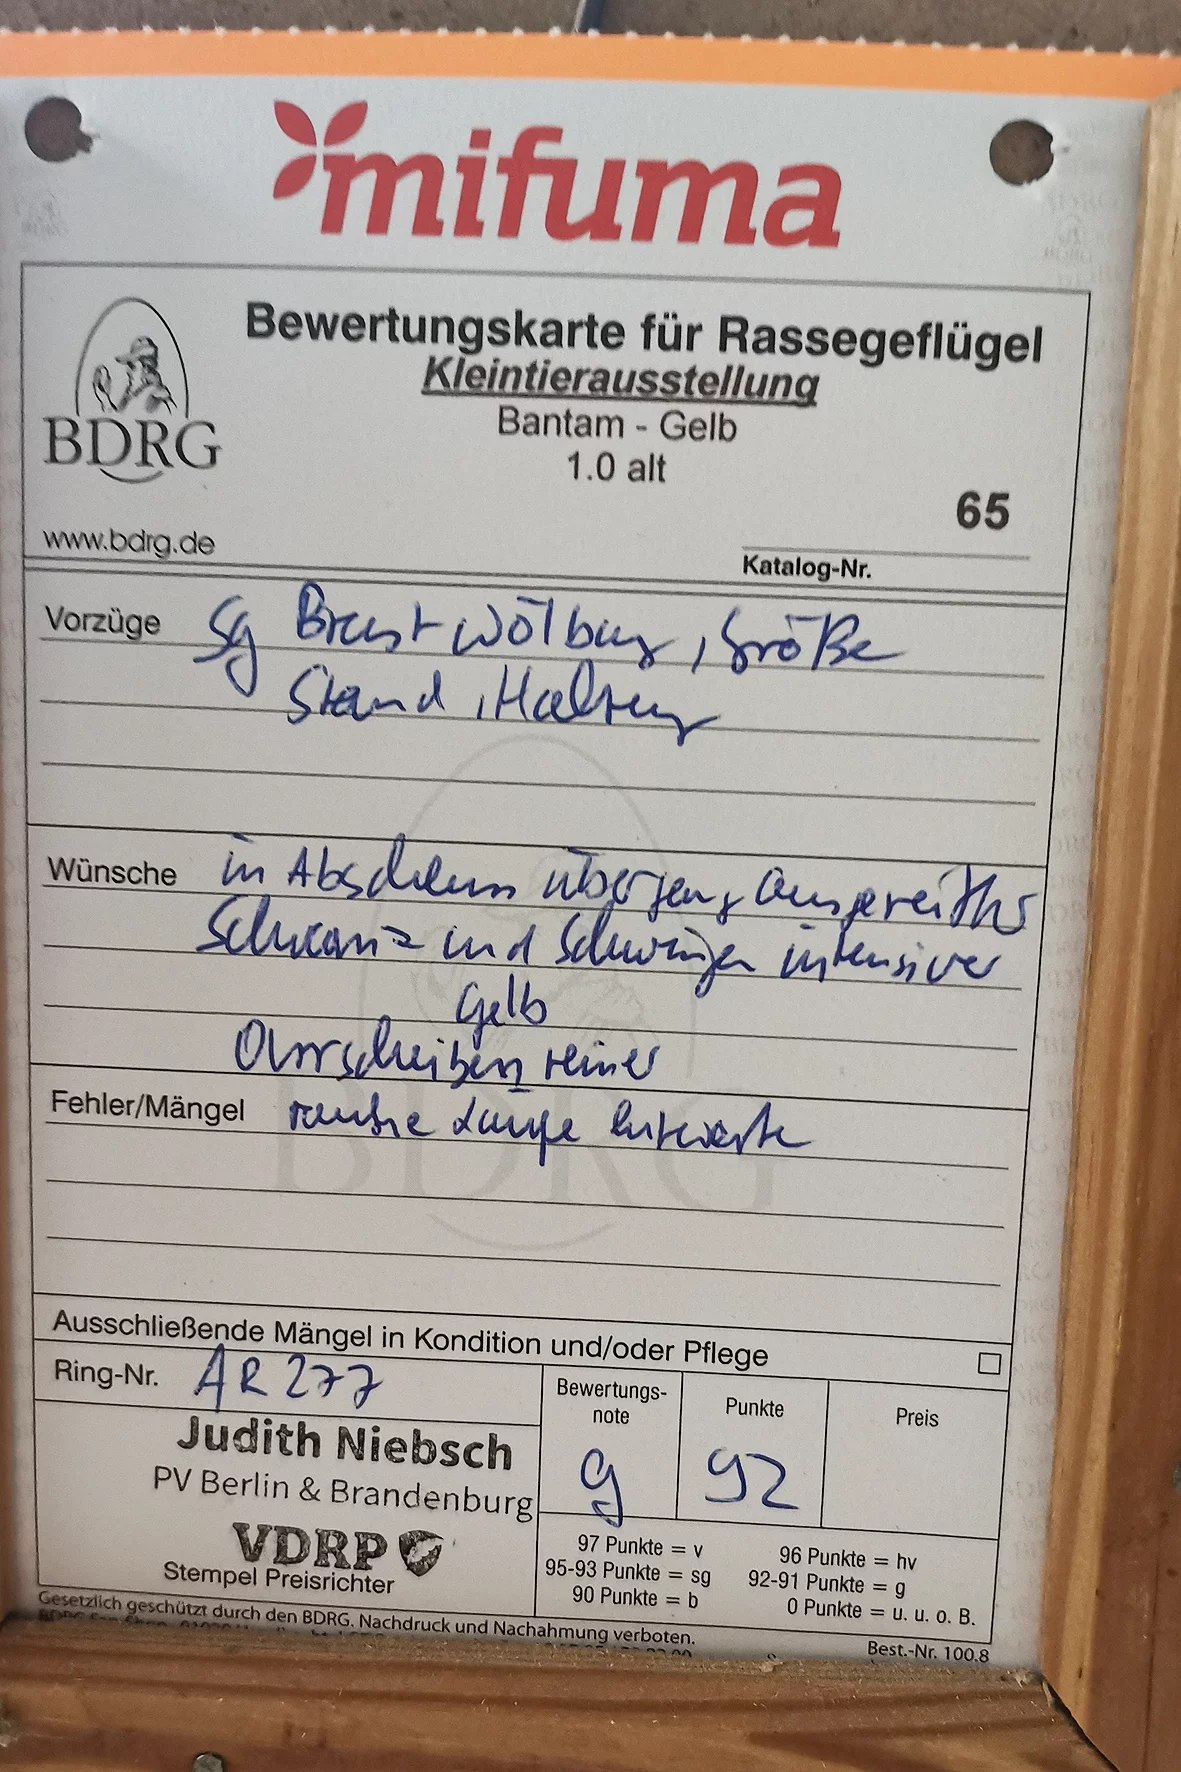 mifuma
Bewertungskarte für Rassegeflügel
Kleintierausstellung
Bantam - Gelb
1.0 alt
BDRG
65
www.bdrg.de
Katalog-Nr.
Vorzüge Sg Brustwölbung, Größe
Stand, Haltung
Wünsche in
Schwanz und Schwingen intensiver
Gelb
Ohrscheiben reiner
Fehler/Mängel Läufe
Ausschließende Mängel in Kondition und/oder Pflege
Ring-Nr. AR 277
Bewertungs-
note
Punkte
Preis
g 92
Judith Niebsch
PV Berlin & Brandenburg
VDRP
Stempel Preisrichter
97 Punkte = v 96 Punkte = hv
95-93 Punkte = sg 92-91 Punkte = g
90 Punkte = b 0 Punkte = u. u. o. B.
Gesetzlich geschützt durch den BDRG. Nachdruck und Nachahmung verboten.
Best.-Nr. 100.8